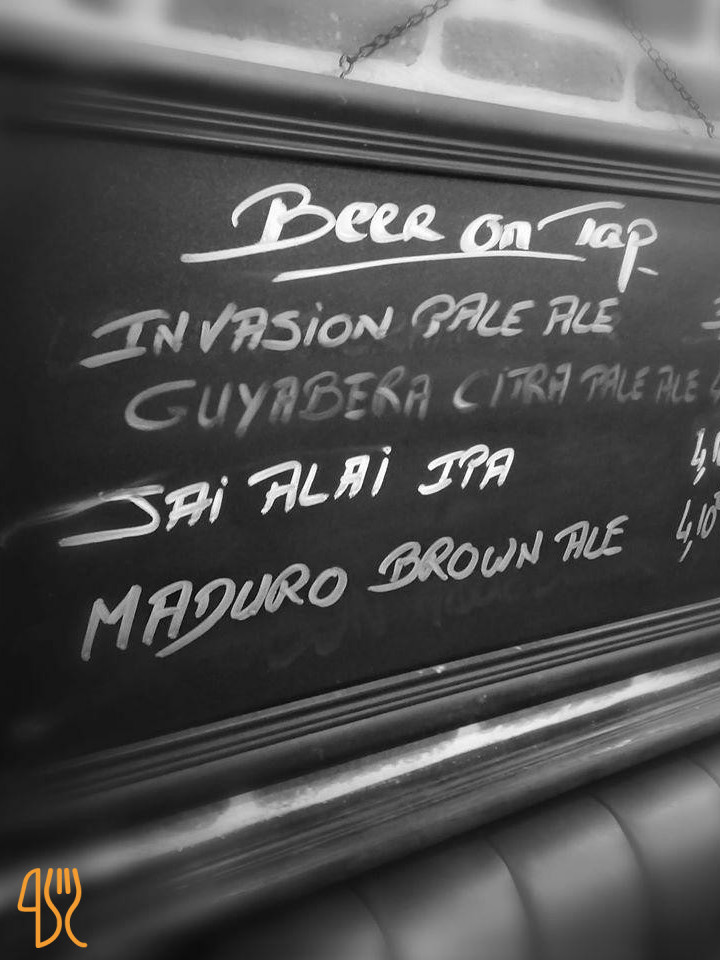 Beer on Tap
INVASION PALE ALE
GUYABERA CITRA PALE ALE
JAI ALAI IPA
MADURO BROWN ALE 4,10